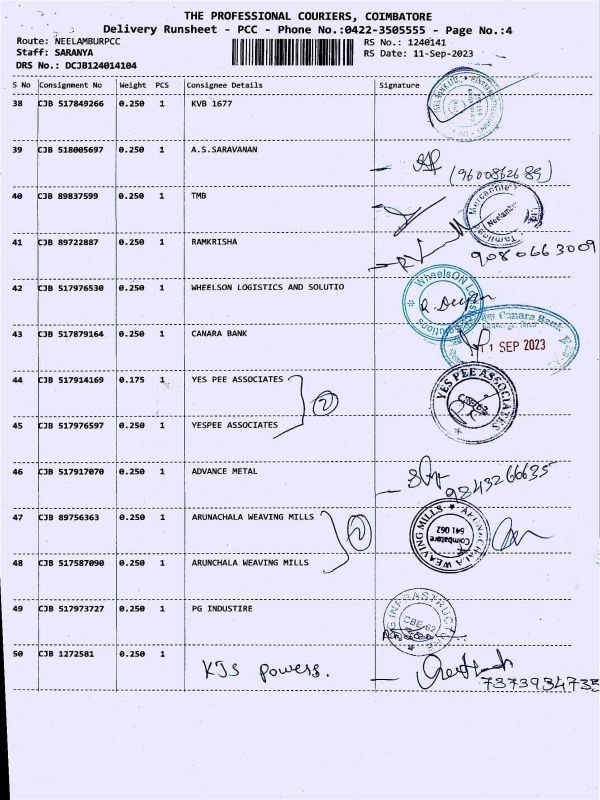 THE PROFESSIONAL COURIERS, COIMBATORE
Delivery Runsheet - PCC - Phone No.:0422-3505555 - Page No.:4
Route: NEELAMBURPCC
RS No.: 1240141
Staff: SARANYA
RS Date: 11-Sep-2023
DRS No.: DCJB124014104
S No Consignment No Weight PCS Consignee Details Signature
38 CJB 517849266 0.250 1 KVB 1677
39 CJB 518005697 0.250 1 A.S.SARAVANAN
(9600862689)
40 CJB 89837599 0.250 1 TMB
Mercantile
Neelambur
Tamilnad
41 CJB 89722887 0.250 1 RAMKRISHA
9080663009
42 CJB 517976530 0.250 1 WHEELSON LOGISTICS AND SOLUTIO
WheelsON Logistics
Solutions
43 CJB 517879164 0.250 1 CANARA BANK
Canara Bank
11 SEP 2023
44 CJB 517914169 0.175 1 YES PEE ASSOCIATES
2
YES PEE ASSOCIATES
45 CJB 517976597 0.250 1 YESPEE ASSOCIATES
46 CJB 517917070 0.250 1 ADVANCE METAL
9843266635
47 CJB 89756363 0.250 1 ARUNACHALA WEAVING MILLS
2
ARUNACHALA WEAVING MILLS
Coimbatore
641 062
48 CJB 517587090 0.250 1 ARUNCHALA WEAVING MILLS
49 CJB 517973727 0.250 1 PG INDUSTIRE
PG INFRASTRUCTURE
CBE-62
50 CJB 1272581 0.250 1 KJS powers.
7373934733